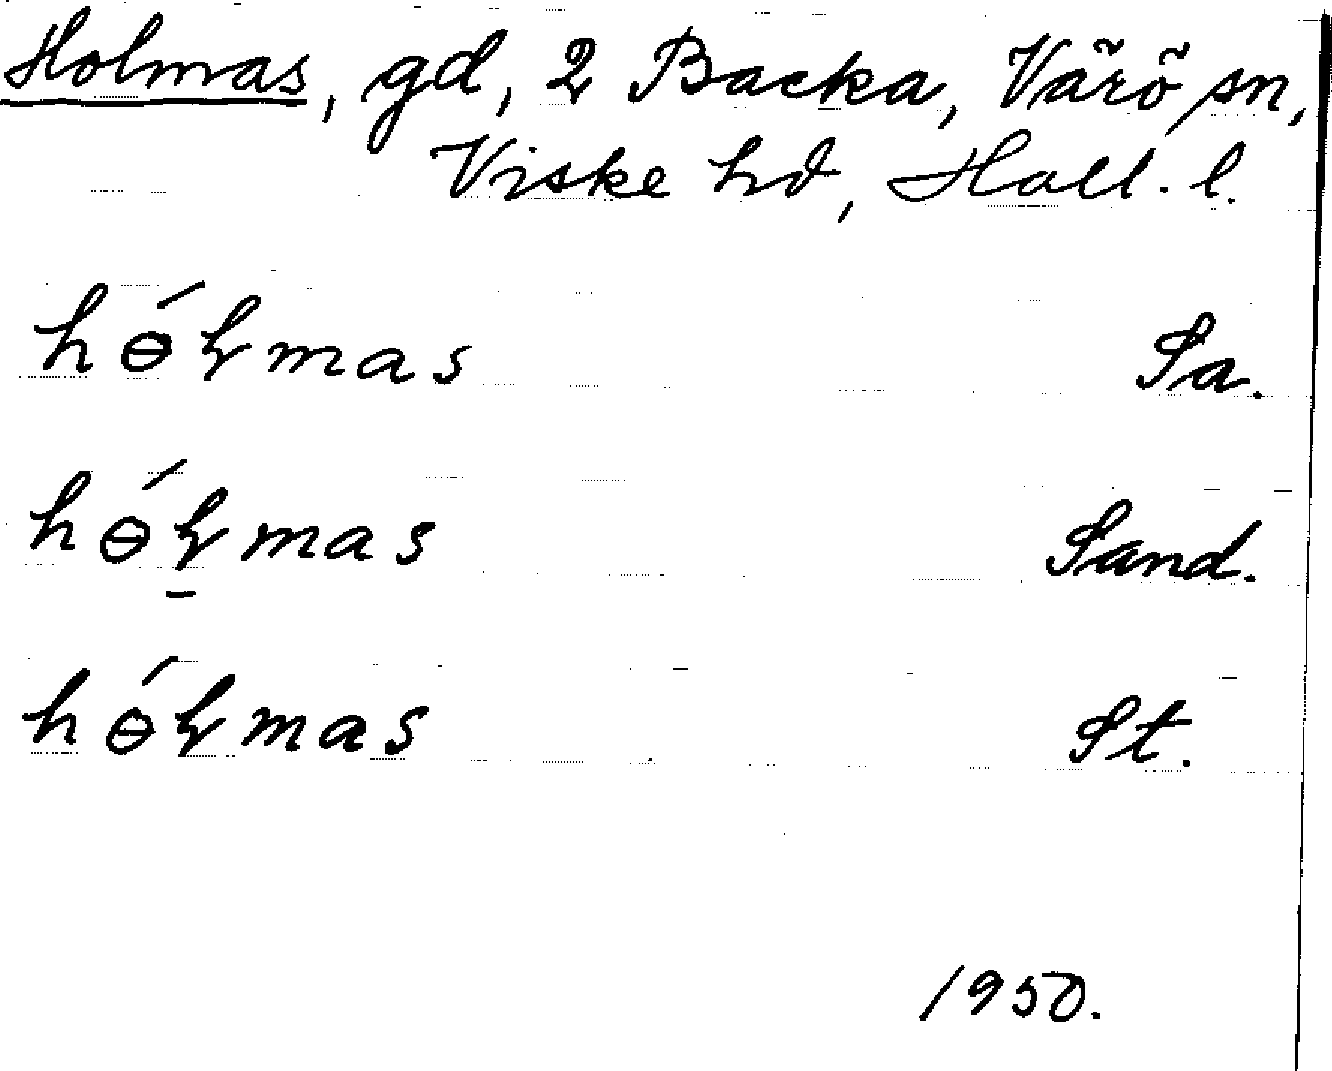 Holmas, gd, 2 Backa, Värö sn,
Viske hd, Hall. l.
hɵ́ɽmas Sa.
hɵ́ɽ̠mas Sand.
hɵ́ɽmas St.
1950.